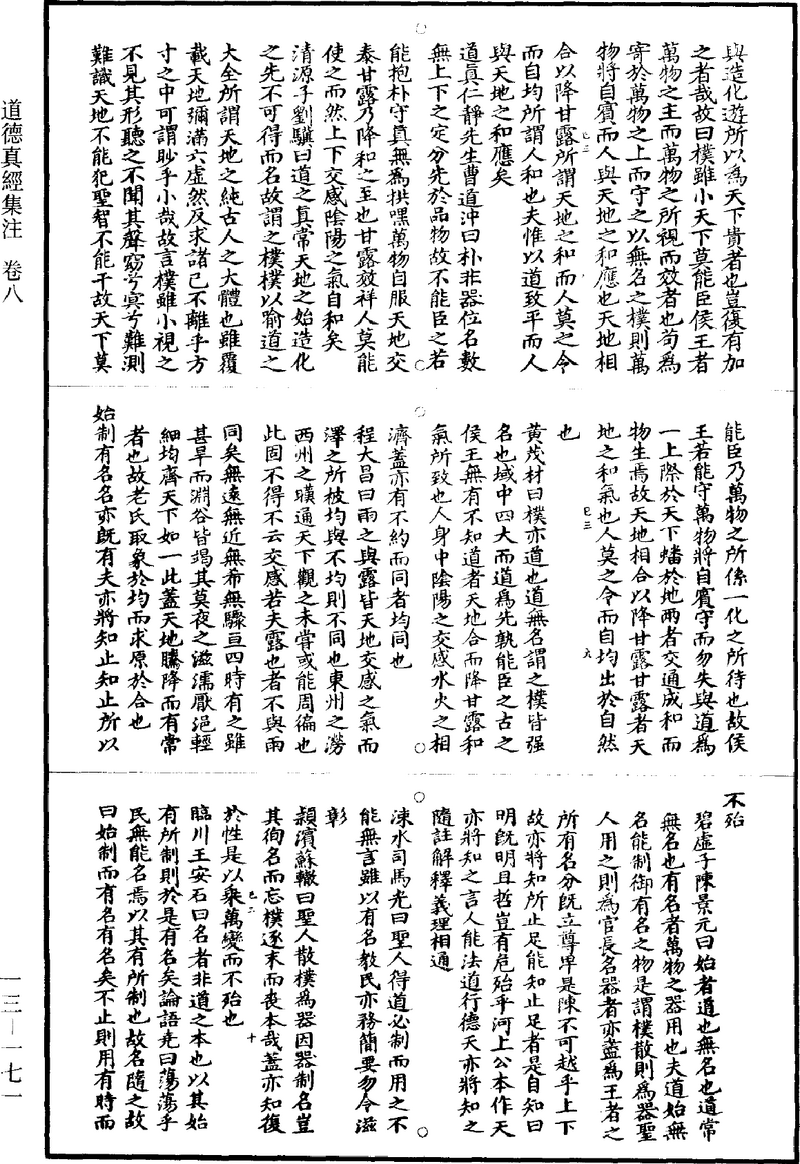 與造化遊所以為天下貴者也豈復有加
之者哉故曰樸雖小天下莫能臣侯王者
萬物之主而萬物之所視而效者也苟為
寄於萬物之上而守之以無名之樸則萬
物將自賓而人與天地之和應也天地相
合以降甘露所謂天地之和而人莫之令
而自均所謂人和也夫惟以道致平而人
與天地之和應矣
道真仁靜先生曹道沖曰朴非器位名數
無上下之定分先於品物故不能臣之若
能抱朴守真無為拱嘿萬物自服天地交
泰甘露乃降和之至也甘露效祥人莫能
使之而然上下交感陰陽之氣自和矣
清源子劉驥曰道之真常天地之始造化
之先不可得而名故謂之樸樸以喻道之
大全所謂天地之純古人之大體也雖覆
載天地彌滿六虛然反求諸己不離乎方
寸之中可謂眇乎小哉故言樸雖小視之
不見其形聽之不聞其聲窈兮冥兮難測
難識天地不能犯聖智不能干故天下莫
能臣乃萬物之所係一化之所待也故侯
王若能守萬物將自賓守而勿失與道為
一上際於天下蟠於地兩者交通成和而
物生焉故天地相合以降甘露甘露者天
地之和氣也人莫之令而自均出於自然
也
黃茂材曰樸亦道也道無名謂之樸皆强
名也域中四大而道為先孰能臣之古之
侯王無有不知道者天地合而降甘露和
氣所致也人身中陰陽之交感水火之相
濟蓋亦有不約而同者均同也
程大昌曰雨之與露皆天地交感之氣而
澤之所被均與不均則不同也東州之澇
西州之暵通天下觀之未甞或能周徧也
此固不得不云交感若夫露也者不與雨
同矣無遠無近無希無驟亘四時有之雖
甚旱而淵谷皆竭其莫夜之滋濡厭浥輕
細均齊天下如一此蓋天地騰降而有常
者也故老氏取象於均而求原於合也
始制有名名亦既有夫亦將知止知止所以
不殆
碧虛子陳景元曰始者道也無名也道常
無名也有名者萬物之器用也夫道始無
名能制御有名之物是謂樸散則為器聖
人用之則為官長名器者亦蓋為王者之
所有名分既立尊卑是陳不可越乎上下
故亦將知所止足能知止足者是自知曰
明既明且哲豈有危殆乎河上公本作天
亦將知之言人能法道行德天亦將知之
隨註解釋義理相通
涑水司馬光曰聖人得道必制而用之不
能無言雖以有名教民亦務簡要勿令滋
彰
潁濱蘇轍曰聖人散樸為器因器制名豈
其徇名而忘樸逐末而喪本哉蓋亦知復
於性是以乘萬變而不殆也
臨川王安石曰名者非道之本也以其始
有所制則於是有名矣論語堯曰蕩蕩乎
民無能名焉以其有所制也故名隨之故
曰始制而有名有名矣不止則用有時而
道德真經集注　卷八
一三—一七一